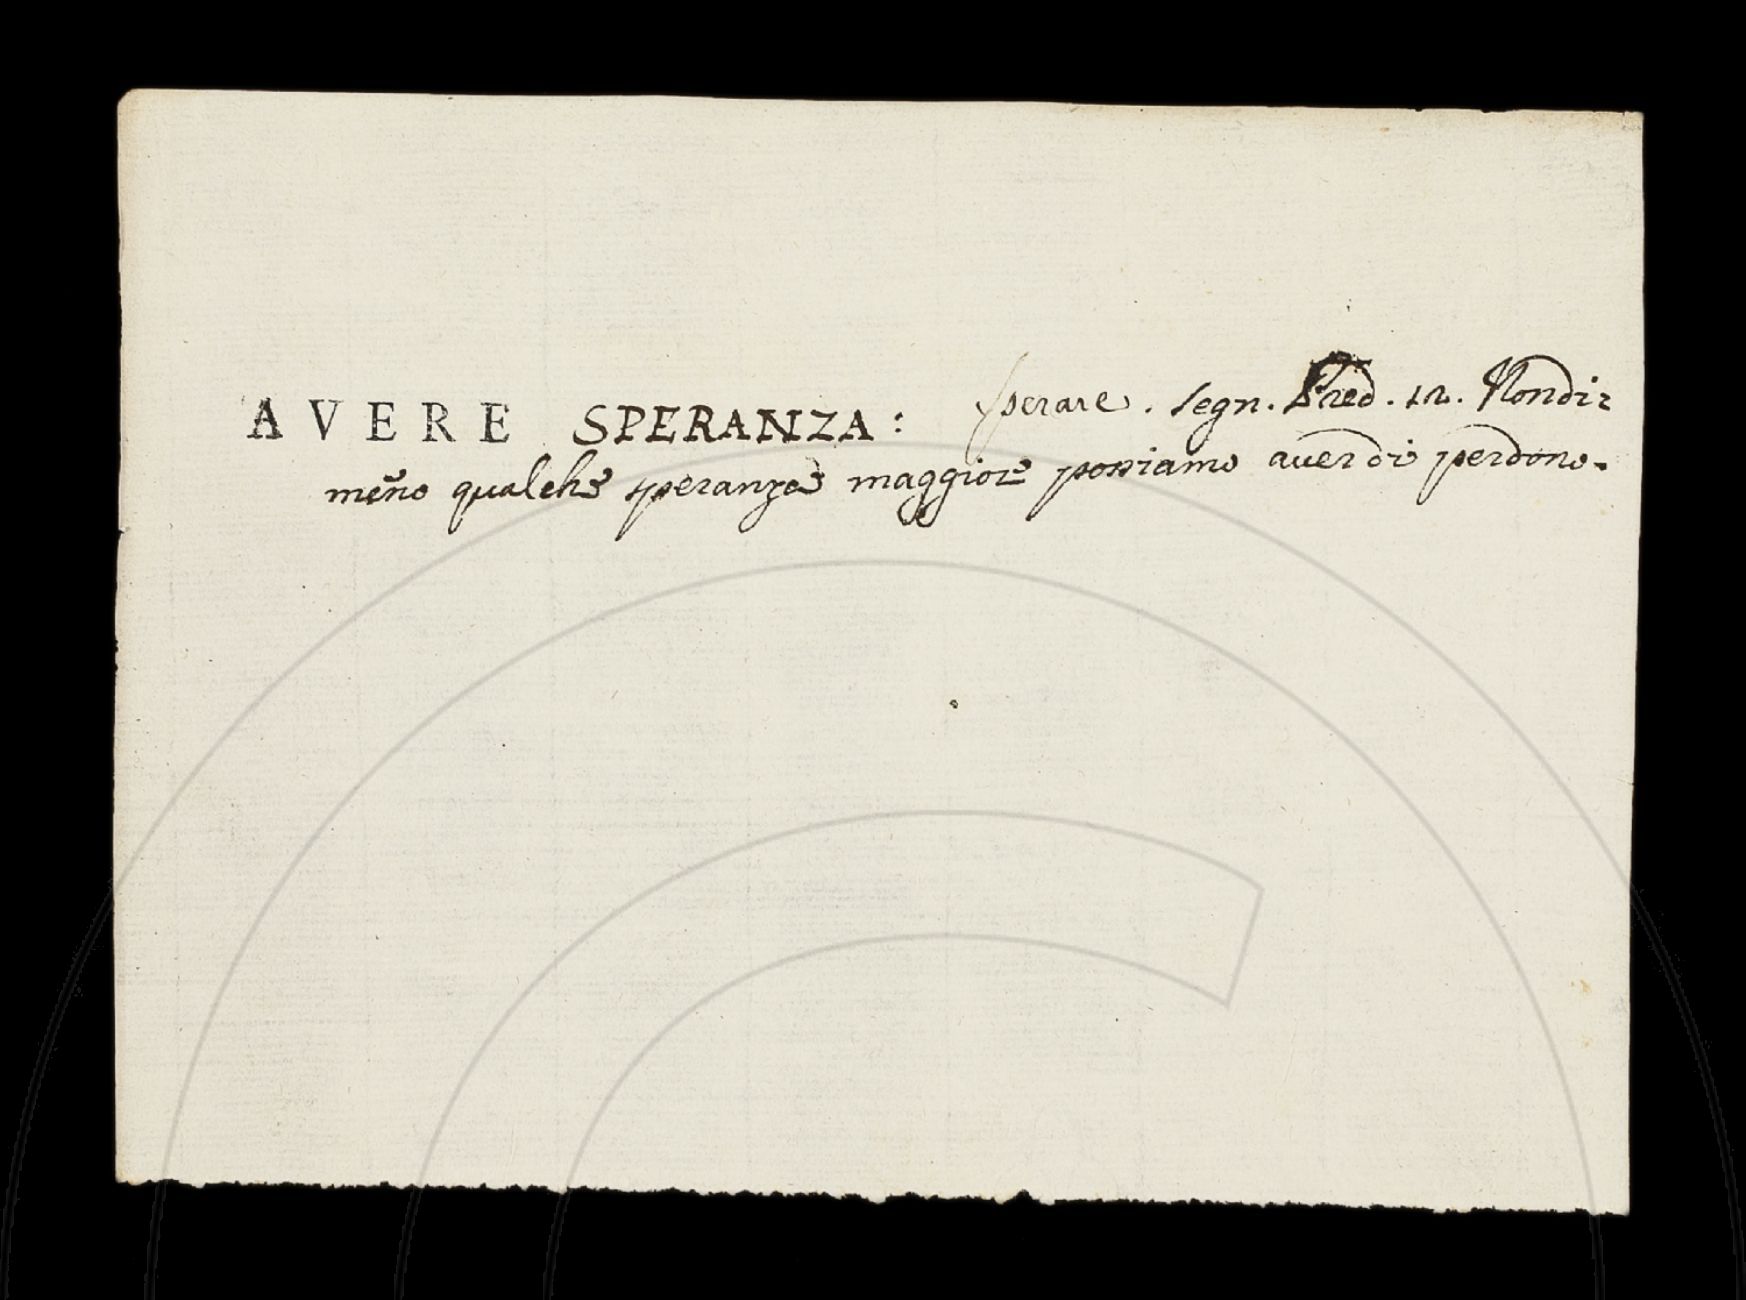 AVERE SPERANZA: sperare. Segn. Pred. 12. Nondi:
meno qualche speranza maggiore possiamo aver di perdono.